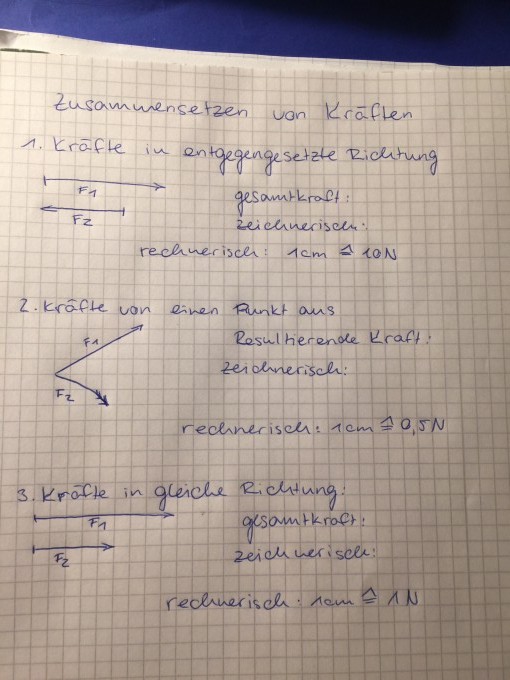 Zusammensetzen von Kräften
1. Kräfte in entgegengesetzte Richtung
F1
gesamtkraft:
F2
zeichnerisch:
rechnerisch: 1cm ≙ 10N
2. Kräfte von einen Punkt aus
F1
Resultierende Kraft:
zeichnerisch:
F2
rechnerisch: 1cm ≙ 0,5N
3. Kräfte in gleiche Richtung:
F1
gesamtkraft:
F2
zeichnerisch:
rechnerisch: 1cm ≙ 1N